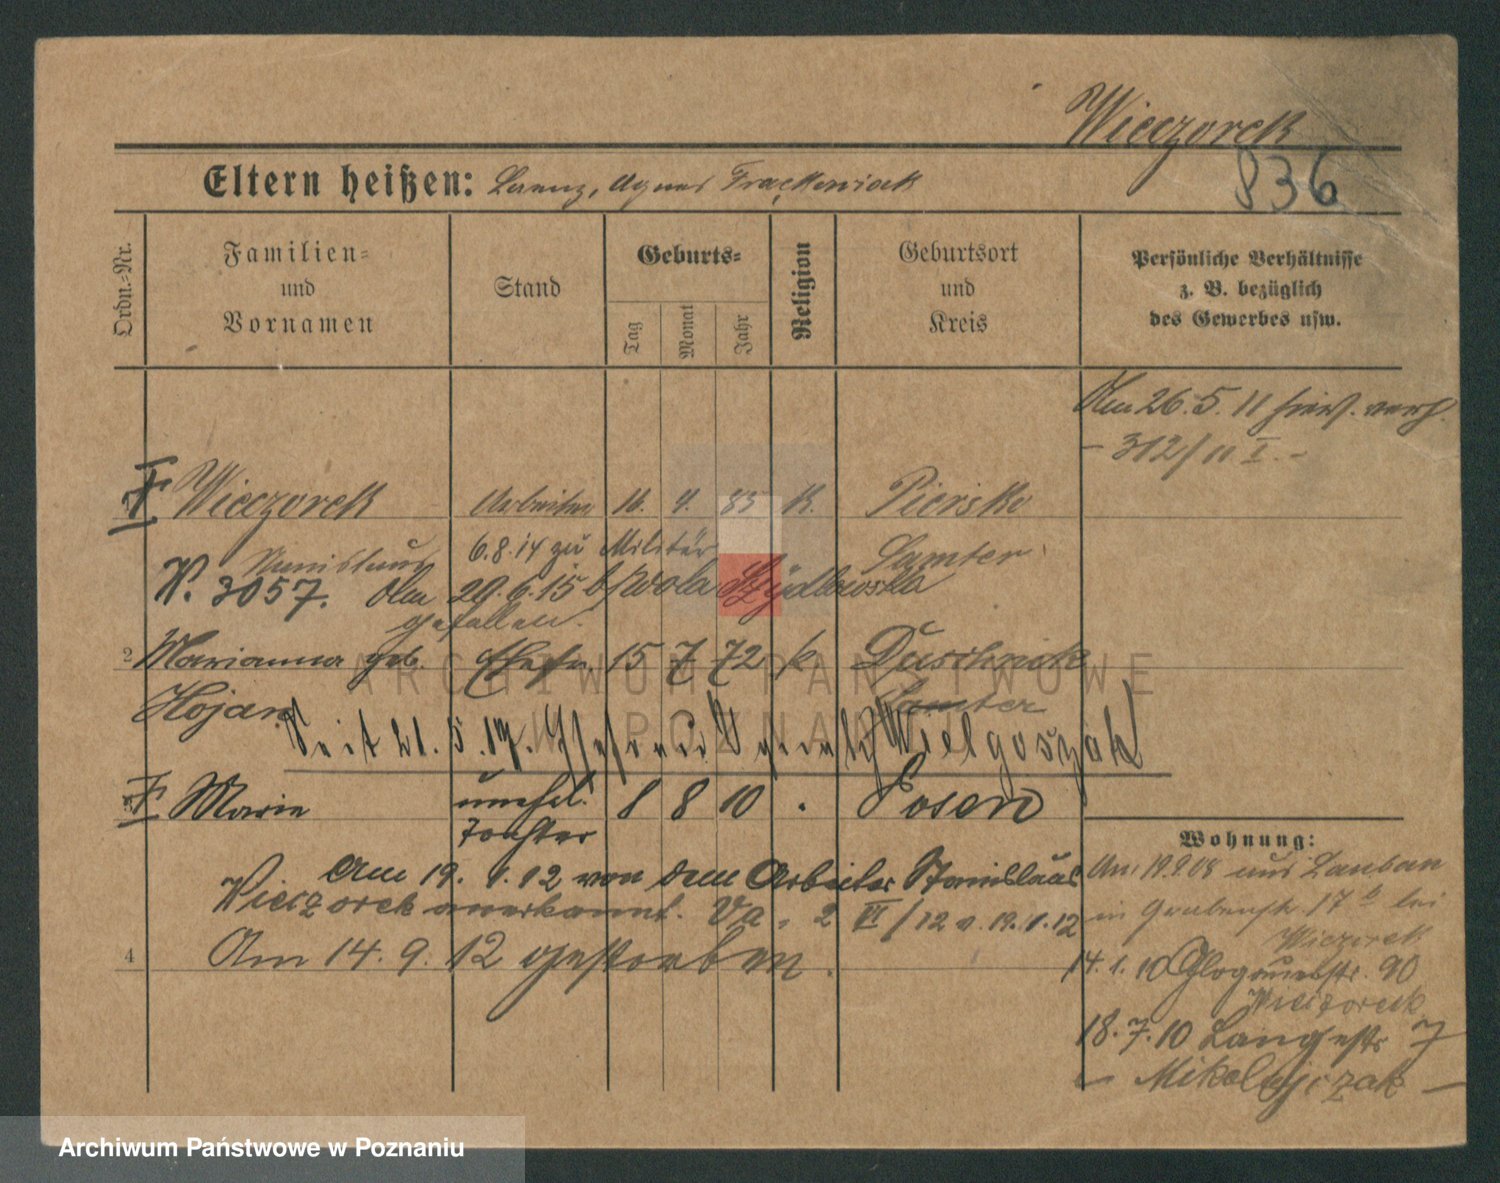 Wieczorek
836
Eltern heißen: Lorenz, Agnes Frąckowiak
Ordn.-Nr.
Familien-
und
Vornamen
Stand
Geburts-
Tag
Monat
Jahr
Religion
Geburtsort
und
Kreis
Persönliche Verhältnisse
z. B. bezüglich
des Gewerbes usw.
Am 26.5.11 verh.
- 312/11 I. -
Wieczorek Arbeiter 16. 4. 83 K. Piersko
Stanislaus 6.8.14 zu Militär Samter
N. 3057. Am 29.6.15 b/ Wola Szydlowska
gefallen.
2 Marianna geb. Ehefr. 15 7 72 k Duschnik
Hojan Samter
Seit 21.5.17. Wielgoszak
3 F Marie unehel. 8 8 10 . Posen
Tochter
Am 19. 1. 12 von dem Arbeiter Stanislaus
Wieczorek anerkannt. Va. 2 VI/12 v. 19.1.12
4 Am 14. 9. 12 gestorben.
Wohnung:
Am 19.9.08 aus Lauban
in Grabenstr. 17 b bei
Wieczorek
14.1.10 Glogauerstr. 90
Wieczorek
18.7.10 Langestr 7
- Mikolajczak -
ARCHIWUM PAŃSTWOWE
W POZNANIU
Archiwum Państwowe w Poznaniu